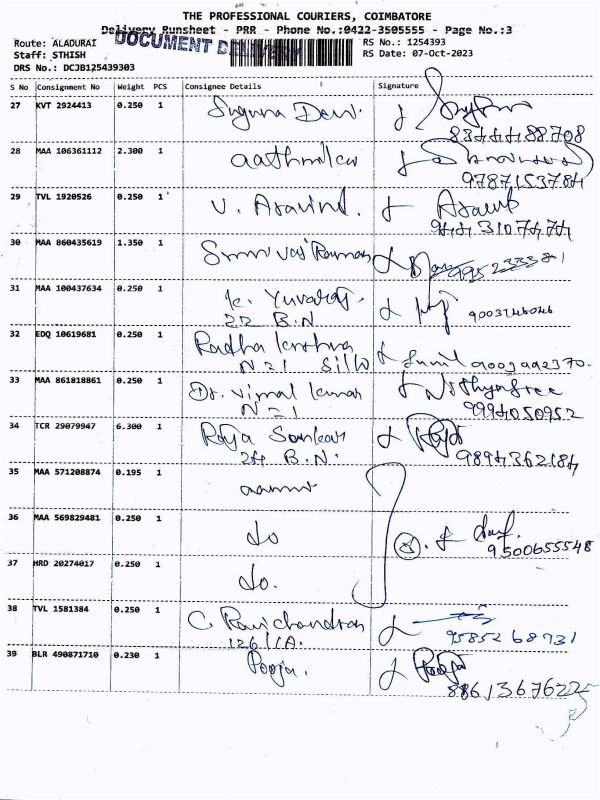 THE PROFESSIONAL COURIERS, COIMBATORE
Delivery Runsheet - PRR - Phone No.:0422-3505555 - Page No.:3
DOCUMENT DELIVERY
Route: ALADURAI RS No.: 1254393
Staff: STHISH RS Date: 07-Oct-2023
DRS No.: DCJB125439303
S No Consignment No Weight PCS Consignee Details Signature
27 KVT 2924413 0.250 1 Suguna Devi
28 MAA 106361112 2.300 1
9787153784
29 TVL 1920526 0.250 1 V. Aravind. Aravind
30 MAA 860435619 1.350 1
31 MAA 100437634 0.250 1 K. Yuvaraj
22 B.N
32 EDQ 10619681 0.250 1 Radha Krishna Sunil
N21 Silk
33 MAA 861818861 0.250 1 Dr. Vimal Kumar Nithyasree
N21 9994050952
34 TCR 29079947 6.300 1 Raja Sankar Raja
24 B.N. 9894362184
35 MAA 571208874 0.195 1
36 MAA 569829481 0.250 1 do
9500655548
37 HRD 20274017 0.250 1 do.
38 TVL 1581384 0.250 1 C. Ravichandran
126/1A. 9585268731
39 BLR 490871710 0.230 1 Pooja. Pooja